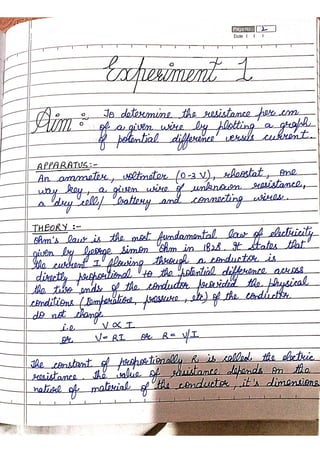 Page No. 2
Date
Experiment 1
Aim :- To determine the resistance per cm
of a given wire by plotting a graph
of potential difference versus current.
APPARATUS:-
An ammeter, voltmeter (0-3 V), rheostat, one
way key, a given wire of unknown resistance,
a dry cell/ battery and connecting wires.
THEORY :-
Ohm's law is the most fundamental law of electricity
given by George Simon Ohm in 1828. It states that
the current I flowing through a conductor is
directly proportional to the potential difference across
the two ends of the conductor provided the physical
conditions (temperature, pressure, etc) of the conductor
do not change
i.e V ∝ I
or V= RI or R= V/I
The constant of proportionally R is called the electric
resistance. The value of resistance depends on the
nature of material of the conductor, it's dimensions